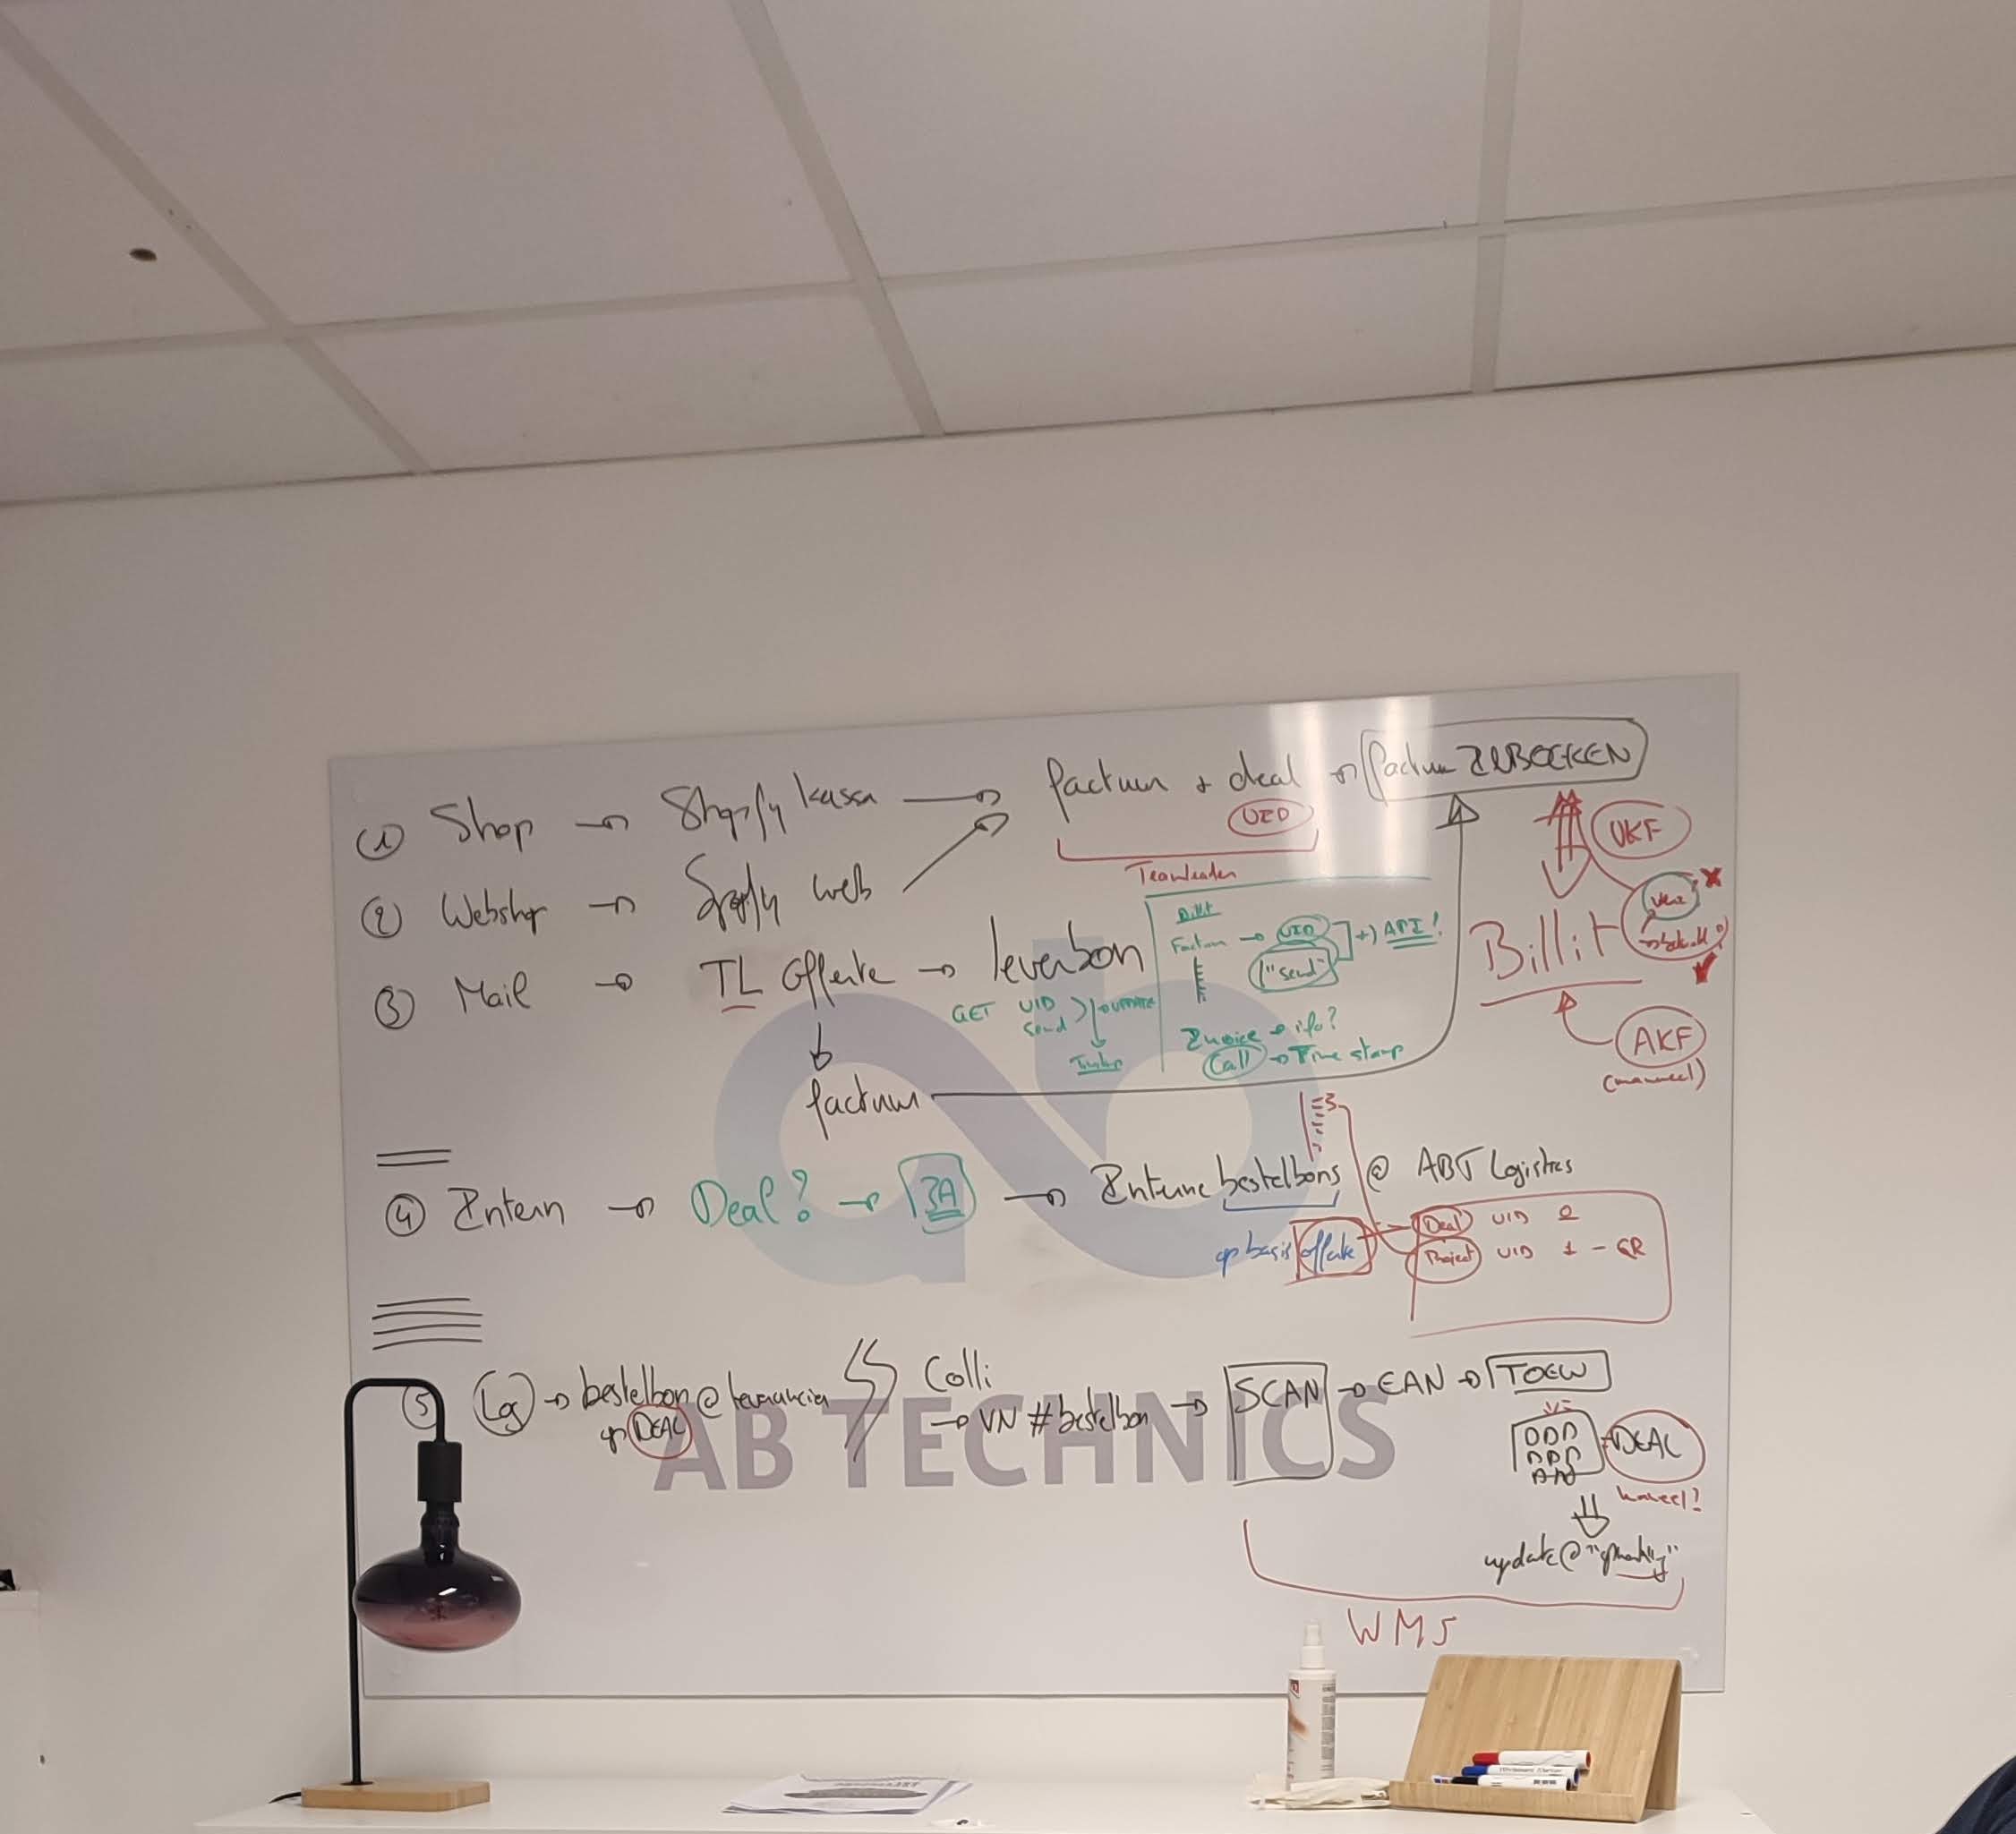 ① Shop → Shopify kassa → factuur + deal → factuur INBOEKEN
UID
Teamleader
② Webshop → Shopify web
③ Mail → TL Offerte → leverbon
factuur
GET UID
send
UPDATE
Billit
Factuur → UID
"send"
+) API!
Invoice → info?
Call → Time stamp
UKF
Billit
AKF
(manueel)
④ Intern → Deal? → JA → Interne bestelbons @ ABT Logistics
op basis offerte
Deal UID 2
Project UID 1 - QR
⑤ Log → bestelbon @ leverancier
op DEAL
Colli
→ VN # bestelbon → SCAN → EAN → TOEW
DEAL
update @
WMS
AB TECHNICS